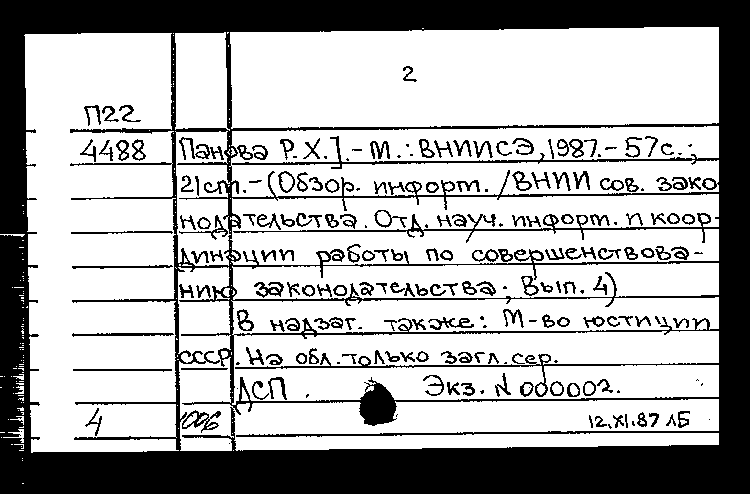 2
П22
4488 Панова Р.Х.].- М.: ВНИИСЭ, 1987.- 57с.;
21см.- (Обзор. информ. / ВНИИ сов. зако-
нодательства. Отд. науч. информ. и коор-
динации работы по совершенствова-
нию законодательства; Вып. 4)
В надзаг. также: М-во юстиции
СССР. На обл. только загл. сер.
ДСП. Экз. N 000002.
4 12.XI.87 ЛБ